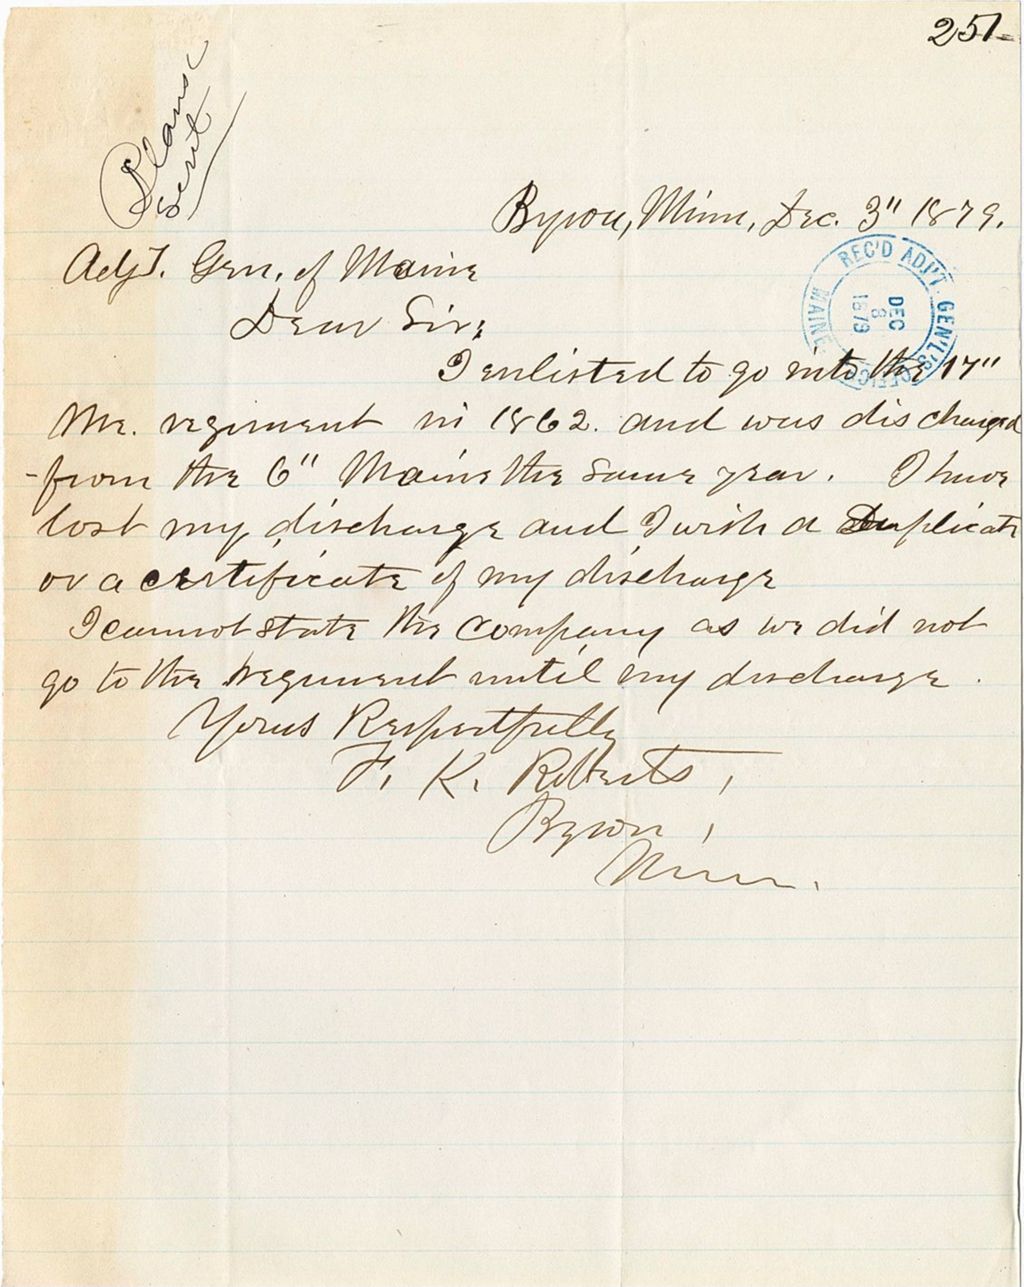 251
Blanks
sent
Byron, Minn, Dec. 3" 1879.
Adjt. Gen. of Maine
REC'D ADJ'T. GEN'L'S OFFICE MAINE
DEC
8
1879
Dear Sir;
I enlisted to go into the 17"
Me. regiment in 1862. and was discharged
from the 6" Maine the same year. I have
lost my discharge and I wish a Duplicate
or a certificate of my discharge
I cannot state the Company as we did not
go to the regiment until my discharge.
Yours Respectfully
F. K. Roberts,
Byron,
Minn.